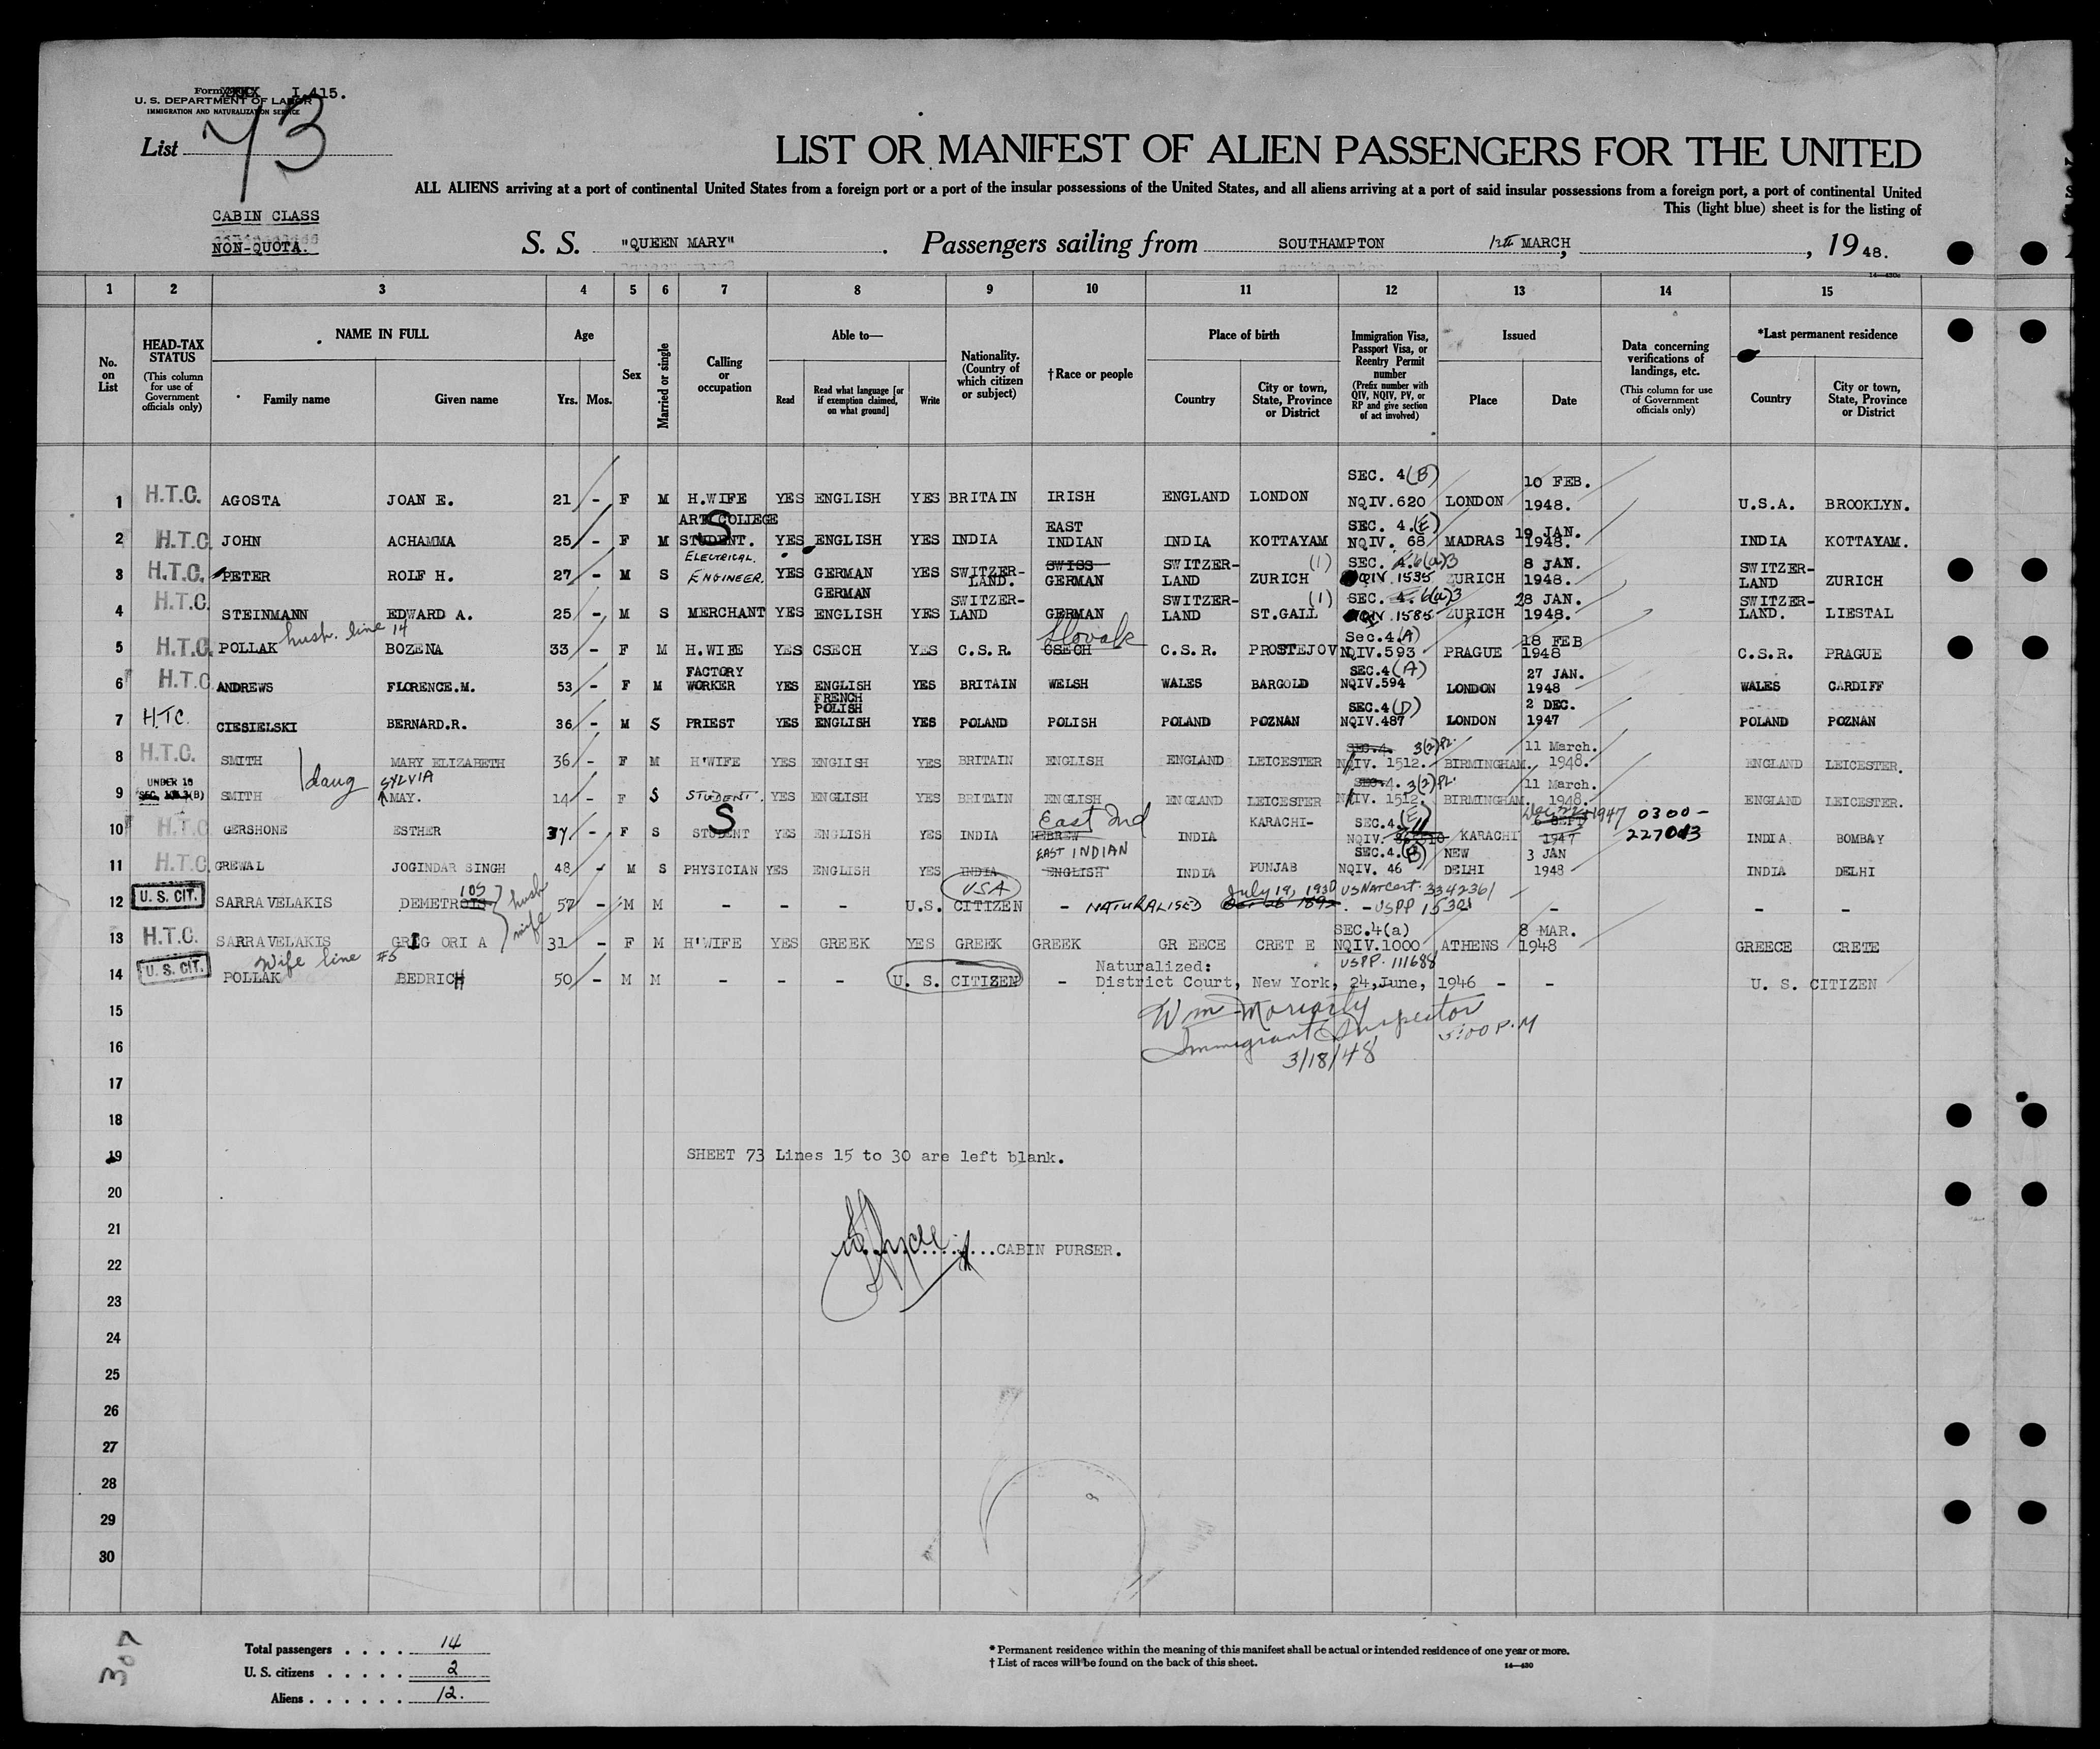 Form I 415.
U. S. DEPARTMENT OF LABOR
IMMIGRATION AND NATURALIZATION SERVICE
List 73
LIST OR MANIFEST OF ALIEN PASSENGERS FOR THE UNITED
ALL ALIENS arriving at a port of continental United States from a foreign port or a port of the insular possessions of the United States, and all aliens arriving at a port of said insular possessions from a foreign port, a port of continental United
This (light blue) sheet is for the listing of
CABIN CLASS
NON-QUOTA.
S. S. "QUEEN MARY". Passengers sailing from SOUTHAMPTON 12th MARCH, , 19 48.
1 2 3 4 5 6 7 8 9 10 11 12 13 14 15
No. on List
HEAD-TAX STATUS (This column for use of Government officials only)
NAME IN FULL Family name Given name
Age Yrs. Mos.
Sex
Married or single
Calling or occupation
Able to— Read Read what language [or if exemption claimed, on what ground] Write
Nationality. (Country of which citizen or subject)
†Race or people
Place of birth Country City or town, State, Province or District
Immigration Visa, Passport Visa, or Reentry Permit number (Prefix number with QIV, NQIV, PV, or RP and give section of act involved)
Issued Place Date
Data concerning verifications of landings, etc. (This column for use of Government officials only)
*Last permanent residence Country City or town, State, Province or District
1 H.T.C. AGOSTA JOAN E. 21 - F M H.WIFE YES ENGLISH YES BRITAIN IRISH ENGLAND LONDON SEC. 4(B) NQIV.620 LONDON 10 FEB. 1948. U.S.A. BROOKLYN.
2 H.T.C. JOHN ACHAMMA 25 - F M ART COLLEGE STUDENT. S YES ENGLISH YES INDIA EAST INDIAN INDIA KOTTAYAM SEC. 4.(E) NQIV. 68 MADRAS 19 JAN. 1948. INDIA KOTTAYAM.
3 H.T.C. PETER ROLF H. 27 - M S ELECTRICAL. ENGINEER. YES GERMAN YES SWITZER-LAND. SWISS GERMAN SWITZER-LAND ZURICH (1) SEC. 4.6(a)3 QIV.1535 ZURICH 8 JAN. 1948. SWITZER-LAND ZURICH
4 H.T.C. STEINMANN EDWARD A. 25 - M S MERCHANT YES GERMAN ENGLISH YES SWITZER-LAND GERMAN SWITZER-LAND ST.GALL (1) SEC. 4.6(a)3 QIV.1585 ZURICH 28 JAN. 1948. SWITZER-LAND. LIESTAL
5 H.T.C. POLLAK husb. line 14 BOZENA 33 - F M H.WIFE YES CSECH YES C.S.R. CSECH Slovak C.S.R. PROSTEJOV Sec.4.(A) NQIV.593 PRAGUE 18 FEB 1948 C.S.R. PRAGUE
6 H.T.C ANDREWS FLORENCE.M. 53 - F M FACTORY WORKER YES ENGLISH YES BRITAIN WELSH WALES BARGOLD SEC.4(A) NQIV.594 LONDON 27 JAN. 1948 WALES CARDIFF
7 H.T.C. CIESIELSKI BERNARD.R. 36 - M S PRIEST YES FRENCH POLISH ENGLISH YES POLAND POLISH POLAND POZNAN SEC.4(D) NQIV.487 LONDON 2 DEC. 1947 POLAND POZNAN
8 H.T.C. SMITH MARY ELIZABETH 36 - F M H'WIFE YES ENGLISH YES BRITAIN ENGLISH ENGLAND LEICESTER SEC.4. 3(2)PL. NQIV. 1512. BIRMINGHAM. 11 March. 1948. ENGLAND LEICESTER.
9 UNDER 16 SMITH daug SYLVIA MAY. 14 - F S STUDENT. YES ENGLISH YES BRITAIN ENGLISH ENGLAND LEICESTER SEC.4. 3(2)PL. NQIV. 1512. BIRMINGHAM. 11 March. 1948. ENGLAND LEICESTER.
10 H.T.C. GERSHONE ESTHER 37 - F S STUDENT S YES ENGLISH YES INDIA HEBREW East Ind INDIA KARACHI- SEC.4.(E) NQIV. 11 KARACHI 6 SEPT 1947 Dec 22 1947 0300-227013 INDIA BOMBAY
11 H.T.C. GREWAL JOGINDAR SINGH 48 - M S PHYSICIAN YES ENGLISH YES INDIA EAST INDIAN ENGLISH INDIA PUNJAB SEC.4.(B) NQIV. 46 NEW DELHI 3 JAN 1948 INDIA DELHI
12 U. S. CIT. SARRAVELAKIS DEMETROIS IOS husb wife 57 - M M - - - U.S. CITIZEN USA - NATURALISED July 19, 1930 US Nat Cert. 3342361 - USPP 15321 - - -
13 H.T.C. SARRAVELAKIS GREGORIA 31 - F M H'WIFE YES GREEK YES GREEK GREEK GREECE CRETE SEC.4(a) NQIV.1000 ATHENS 8 MAR. 1948 GREECE CRETE
14 U. S. CIT. POLLAK Wife line #5 BEDRICH 50 - M M - - - U. S. CITIZEN - Naturalized: District Court, New York, 24,June, 1946 USPP. 111688 - - U. S. CITIZEN
15 Wm Moriarty
16 Immigrant Inspector 5:00 P.M
3/18/48
17
18
19 SHEET 73 Lines 15 to 30 are left blank.
20
21
22 CABIN PURSER.
23
24
25
26
27
28
29
30
307
Total passengers . . . . 14
U. S. citizens . . . . . 2
Aliens . . . . . . 12.
* Permanent residence within the meaning of this manifest shall be actual or intended residence of one year or more.
† List of races will be found on the back of this sheet.
14—430